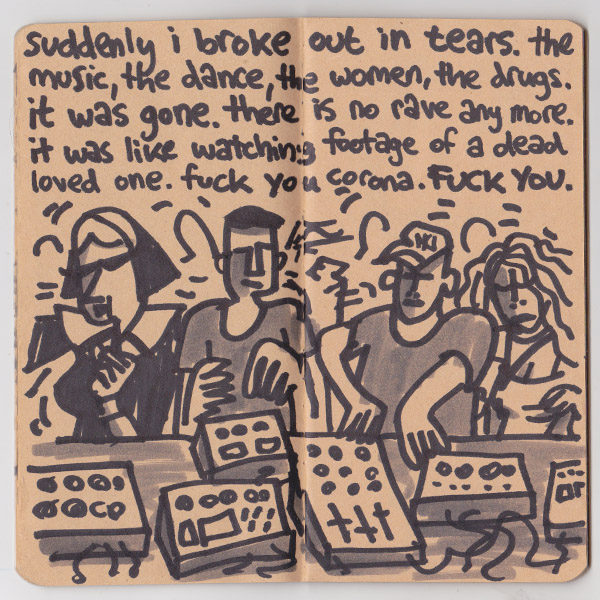 suddenly i broke out in tears. the
music, the dance, the women, the drugs.
it was gone. there is no rave any more.
it was like watching footage of a dead
loved one. fuck you corona. FUCK YOU.